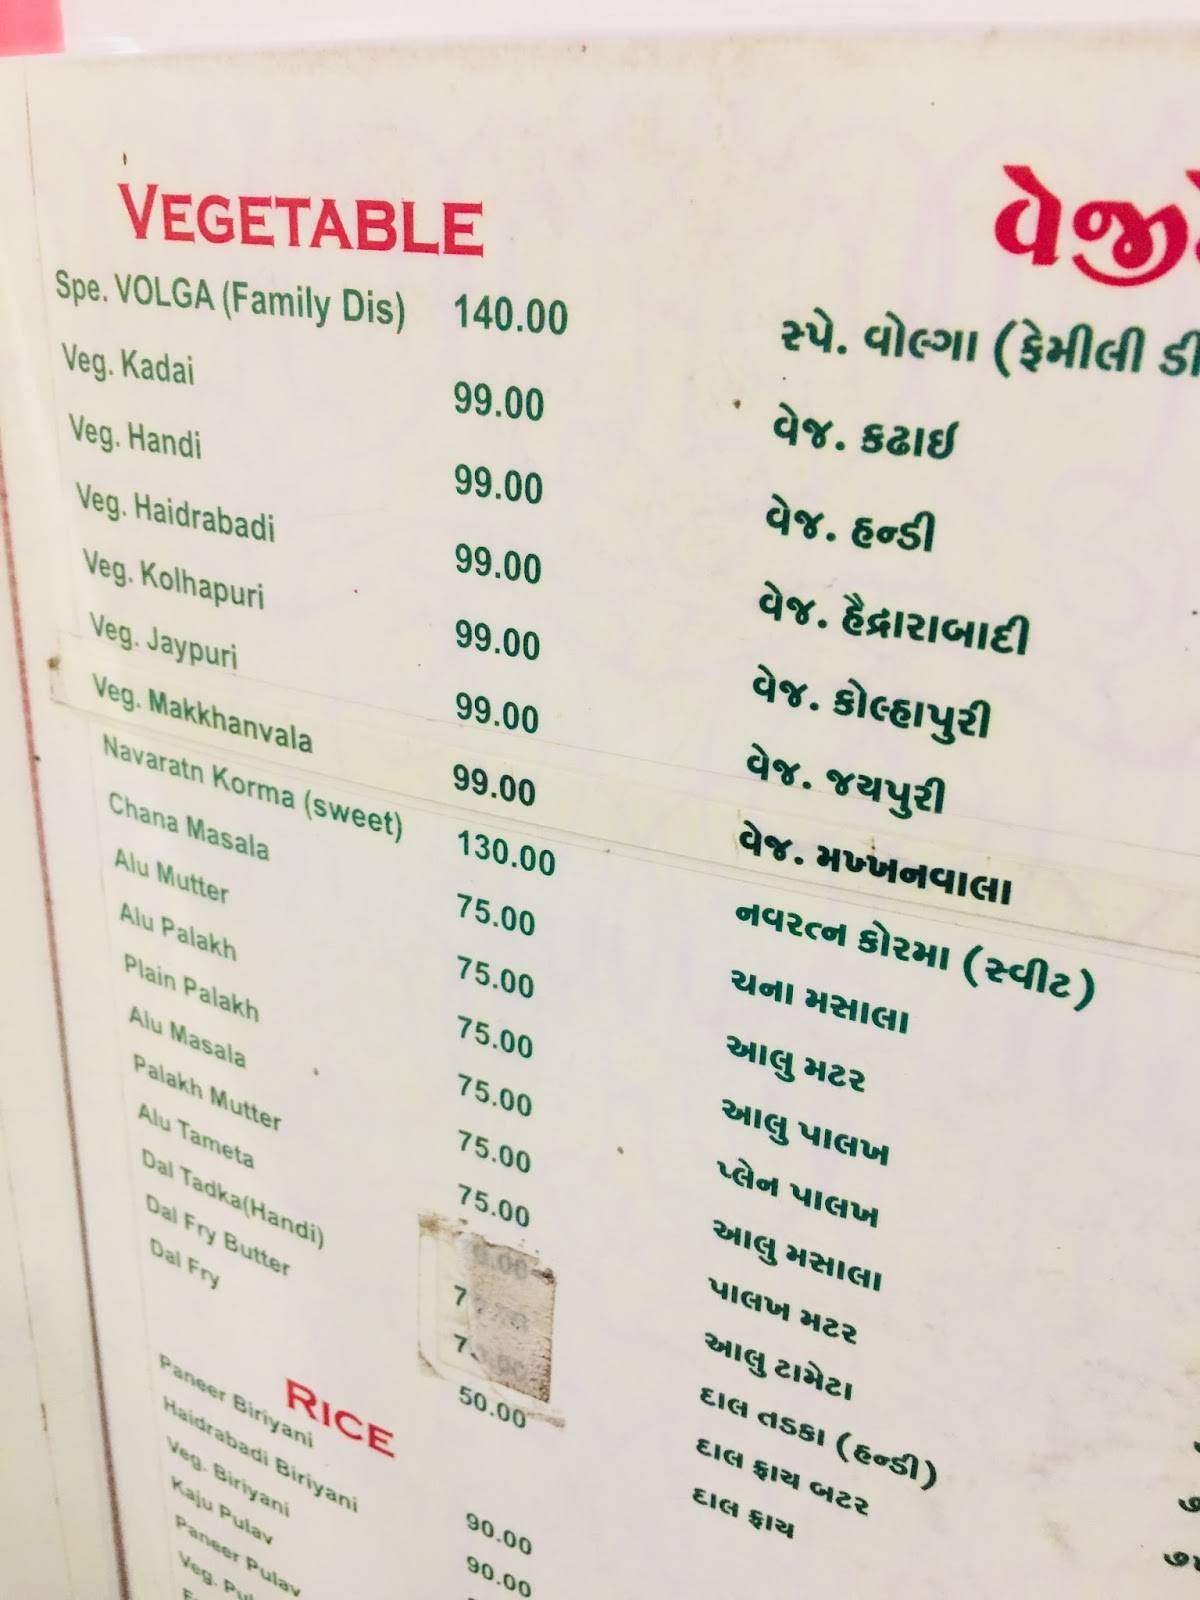 VEGETABLE
Spe. VOLGA (Family Dis) 140.00
Veg. Kadai 99.00
Veg. Handi 99.00
Veg. Haidrabadi 99.00
Veg. Kolhapuri 99.00
Veg. Jaypuri 99.00
Veg. Makkhanvala 99.00
Navaratn Korma (sweet) 130.00
Chana Masala 75.00
Alu Mutter 75.00
Alu Palakh 75.00
Plain Palakh 75.00
Alu Masala 75.00
Palakh Mutter 75.00
Alu Tameta
Dal Tadka(Handi)
Dal Fry Butter
Dal Fry 50.00
RICE
Paneer Biriyani 90.00
Haidrabadi Biriyani 90.00
Veg. Biriyani
Kaju Pulav
Paneer Pulav
Veg.
સ્પે. વોલ્ગા (ફેમીલી
વેજ. કઢાઇ
વેજ. હન્ડી
વેજ. હૈદ્રારાબાદી
વેજ. કોલ્હાપુરી
વેજ. જયપુરી
વેજ. મખ્ખનવાલા
નવરત્ન કોરમા (સ્વીટ)
ચના મસાલા
આલુ મટર
આલુ પાલખ
પ્લેન પાલખ
આલુ મસાલા
પાલખ મટર
આલુ ટામેટા
દાલ તડકા (હન્ડી)
દાલ ફ્રાય બટર
દાલ ફ્રાય